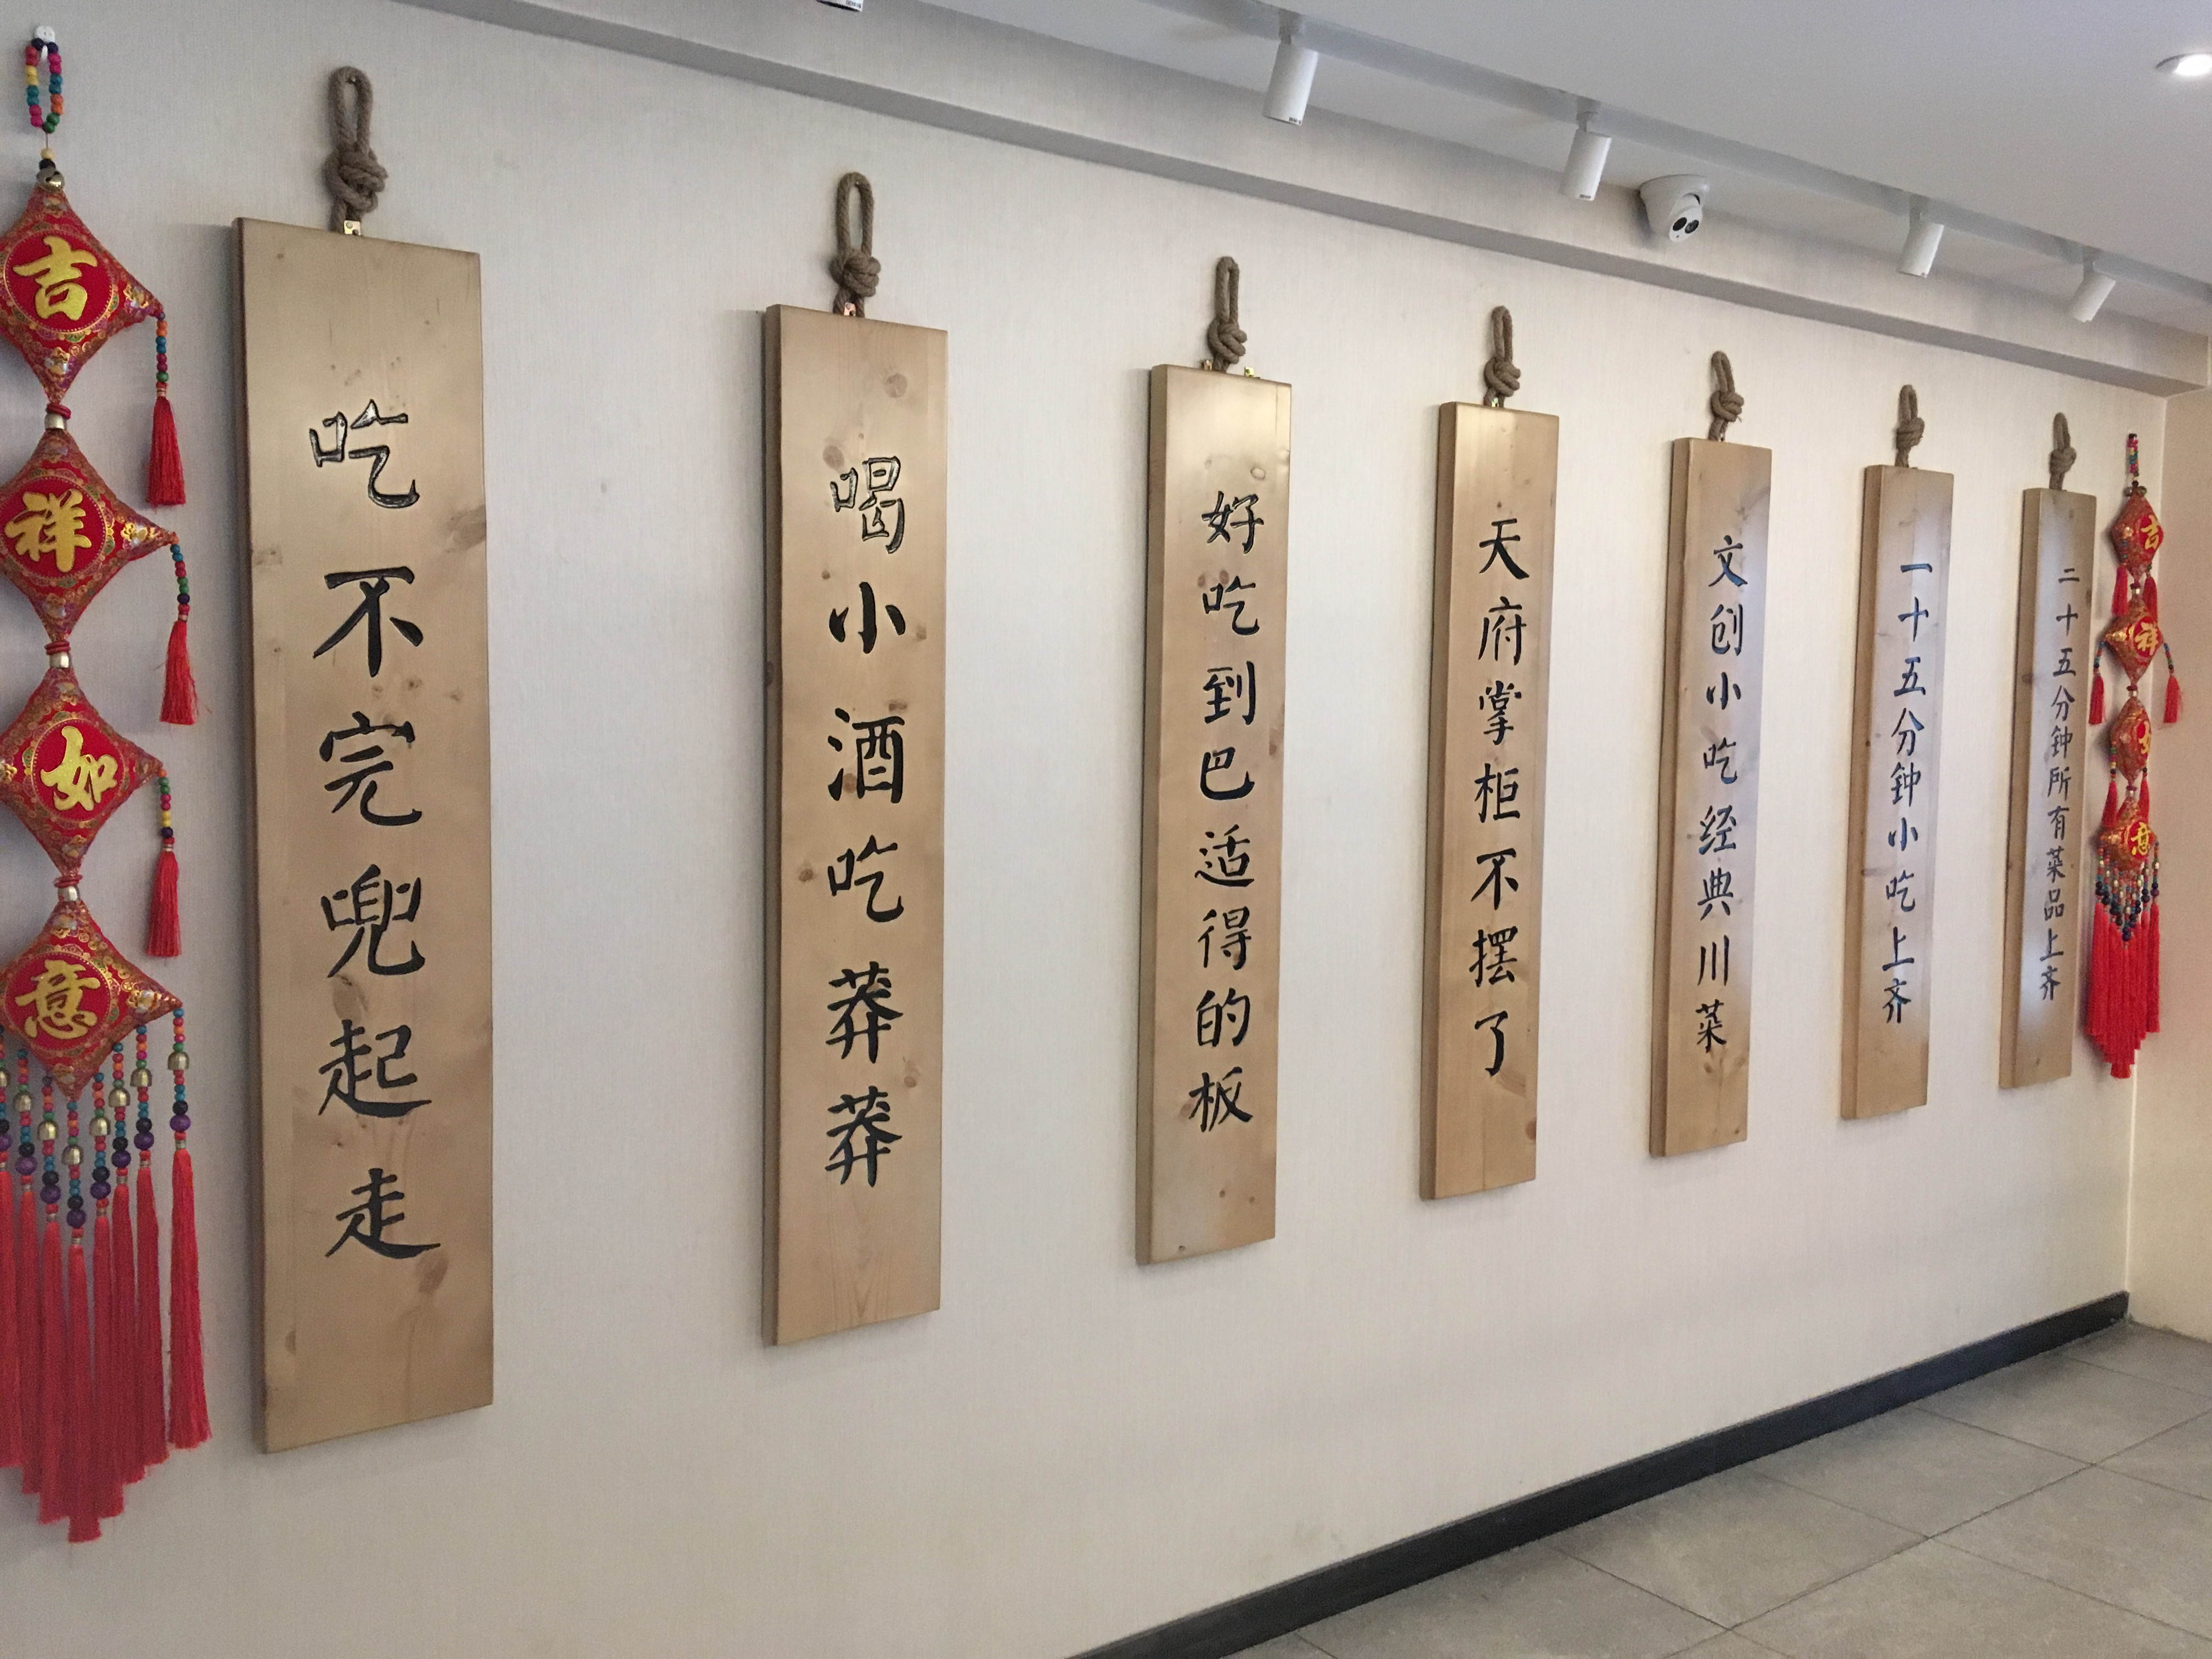 吉祥如意
吃不完兜起走
喝小酒吃莽莽
好吃到巴适得的板
天府掌柜不摆了
文创小吃经典川菜
一十五分钟小吃上齐
二十五分钟所有菜品上齐
吉祥如意